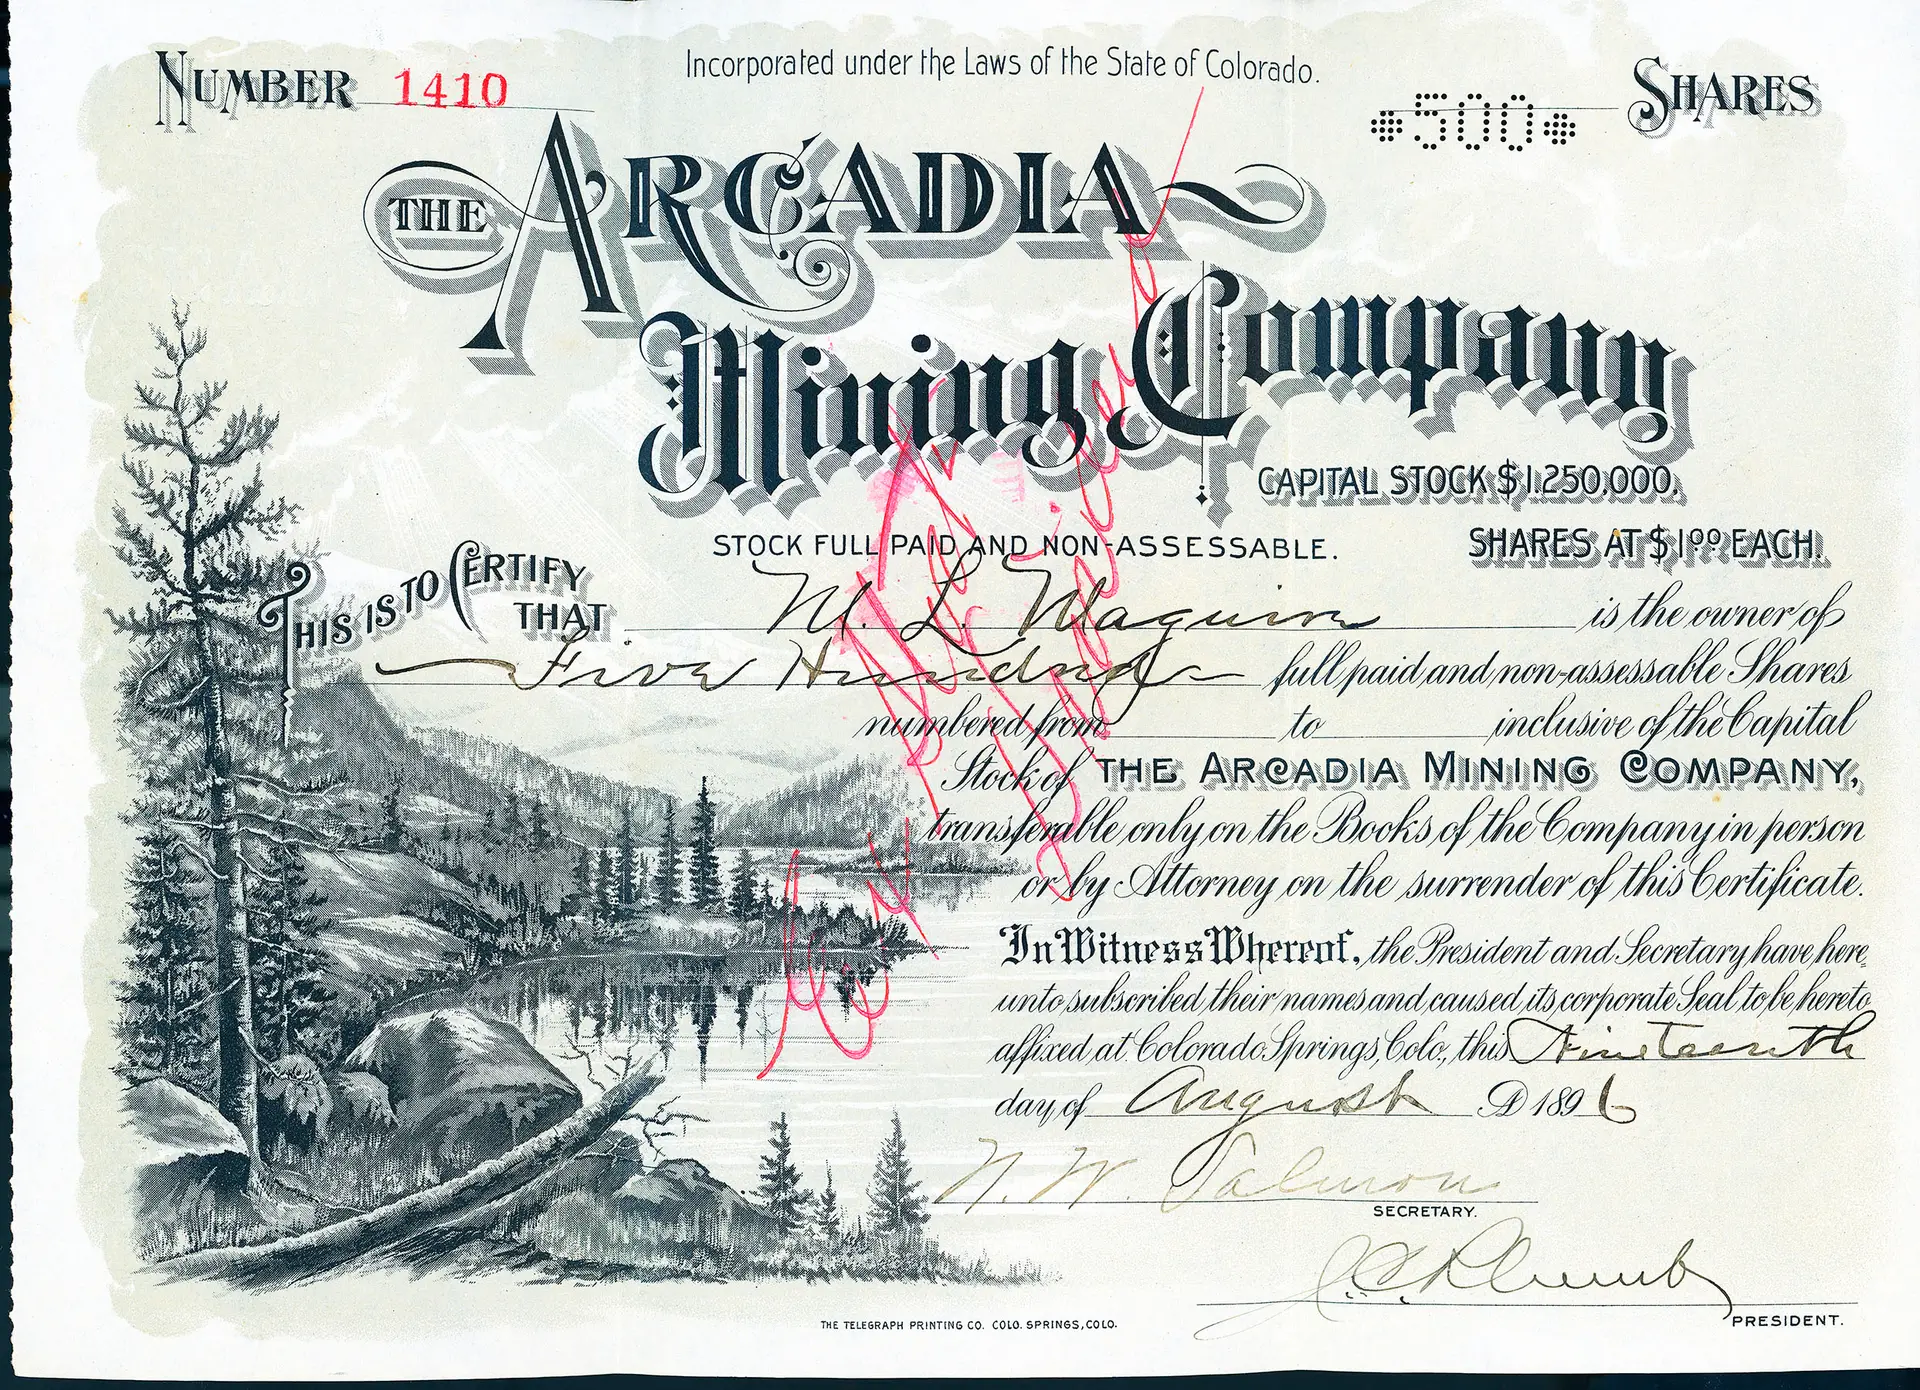 NUMBER 1410
Incorporated under the Laws of the State of Colorado.
*500* SHARES
THE ARCADIA
Mining Company
CAPITAL STOCK $1.250,000.
STOCK FULL PAID AND NON-ASSESSABLE.
SHARES AT $1.00 EACH.
THIS IS TO CERTIFY
THAT M. L. Maguire is the owner of
Five Hundred full paid and non-assessable Shares
numbered from to inclusive of the Capital
Stock of THE ARCADIA MINING COMPANY,
transferable only on the Books of the Company in person
or by Attorney on the surrender of this Certificate.
In Witness Whereof, the President and Secretary have here=
unto subscribed their names and caused its corporate Seal to be hereto
affixed at Colorado Springs, Colo., this Nineteenth
day of August AD 1896
N. W. Salmon
SECRETARY.
PRESIDENT.
THE TELEGRAPH PRINTING CO. COLO. SPRINGS, COLO.